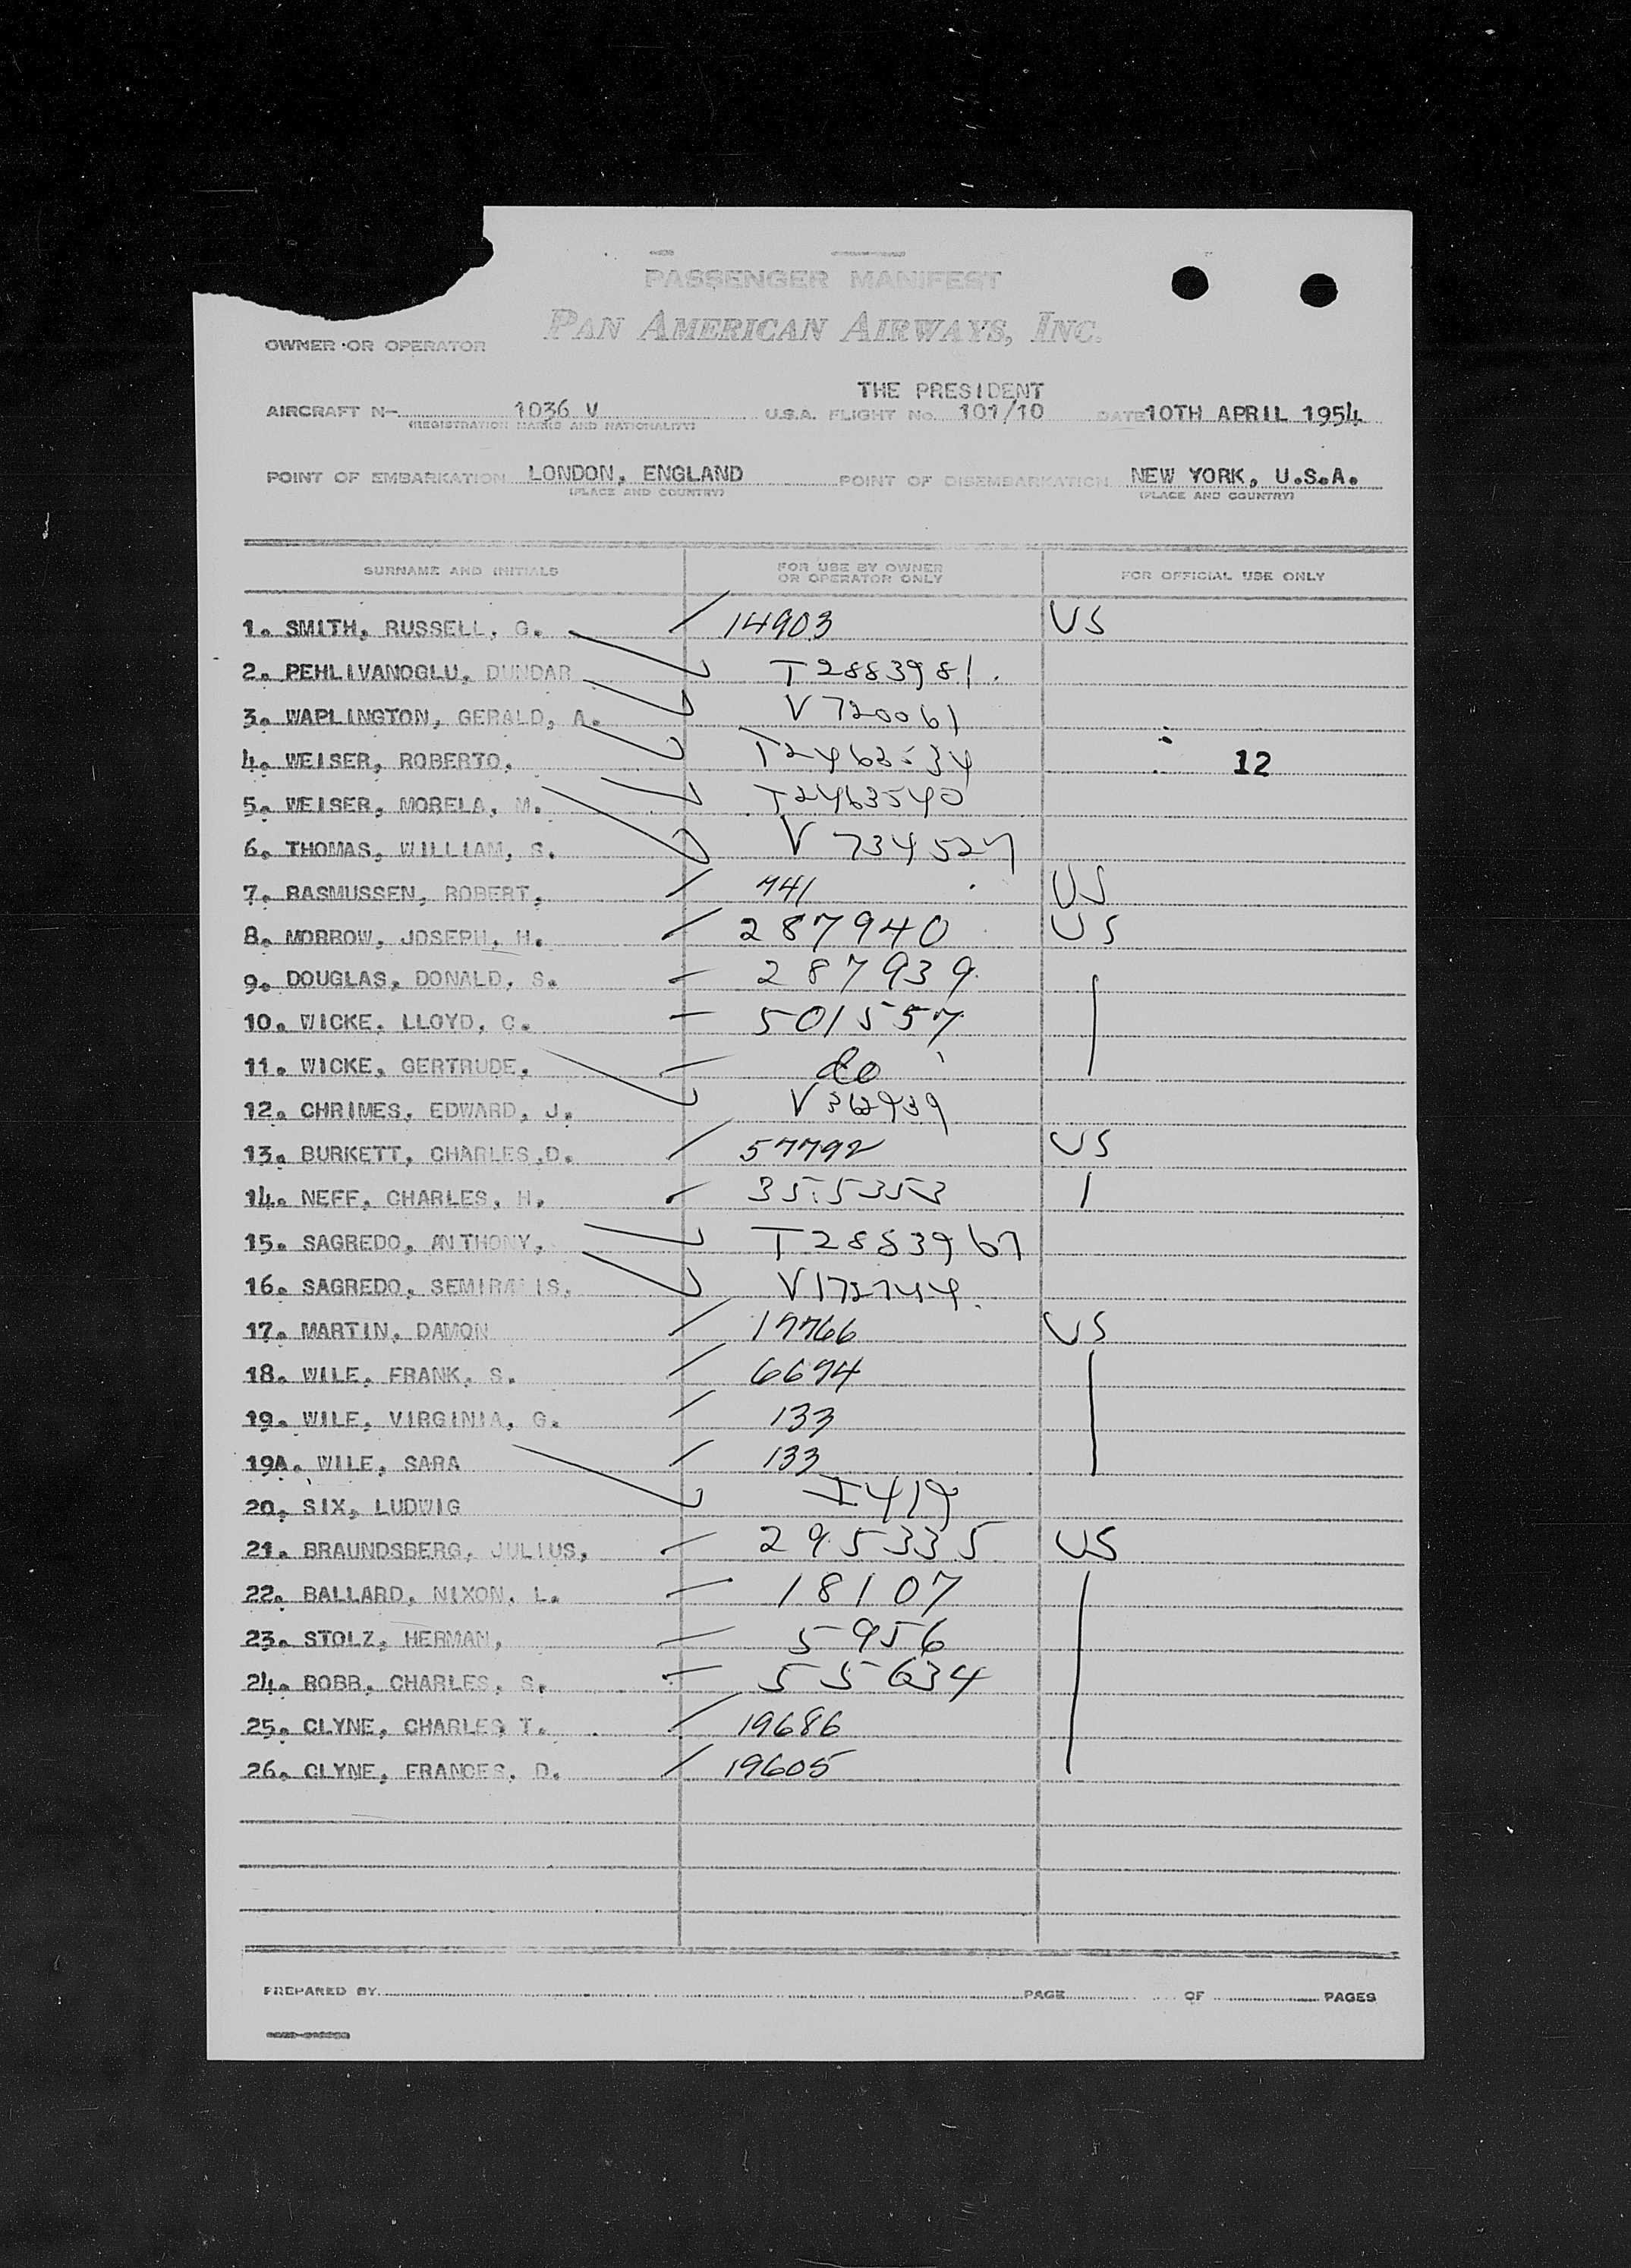 PASSENGER MANIFEST
PAN AMERICAN AIRWAYS, INC.
OWNER OR OPERATOR
THE PRESIDENT
AIRCRAFT N- 1036 V U.S.A. FLIGHT No. 101/10 DATE 10TH APRIL 1954
(REGISTRATION MARKS AND NATIONALITY)
POINT OF EMBARKATION LONDON, ENGLAND POINT OF DISEMBARKATION NEW YORK, U.S.A.
(PLACE AND COUNTRY) (PLACE AND COUNTRY)
SURNAME AND INITIALS FOR USE BY OWNER OR OPERATOR ONLY FOR OFFICIAL USE ONLY
1. SMITH, RUSSELL, G. 14903 US
2. PEHLIVANOGLU, DUNDAR T2883981.
3. WAPLINGTON, GERALD, A. V720061
4. WEISER, ROBERTO, 12
5. WEISER, MORELA, M. T2463540
6. THOMAS, WILLIAM, S. V 734527
7. RASMUSSEN, ROBERT, 741 US
8. MORROW, JOSEPH, H. 287940 US
9. DOUGLAS, DONALD, S. 287939
10. WICKE, LLOYD, C. 501557
11. WICKE, GERTRUDE, do
12. CHRIMES, EDWARD, J.
13. BURKETT, CHARLES,D. 57792 US
14. NEFF, CHARLES, H. 355353
15. SAGREDO, ANTHONY, T2883967
16. SAGREDO, V172744
17. MARTIN, DAMON 17766 US
18. WILE, FRANK, S. 6694
19. WILE, VIRGINIA, G. 133
19A. WILE, SARA 133
20. SIX, LUDWIG I419
21. BRAUNDSBERG, JULIUS, 295335 US
22. BALLARD, NIXON, L. 18107
23. STOLZ, HERMAN, 5956
24. ROBB, CHARLES, S. 55634
25. CLYNE, CHARLES T. 19686
26. CLYNE, FRANCES, D. 19605
PREPARED BY PAGE OF PAGES